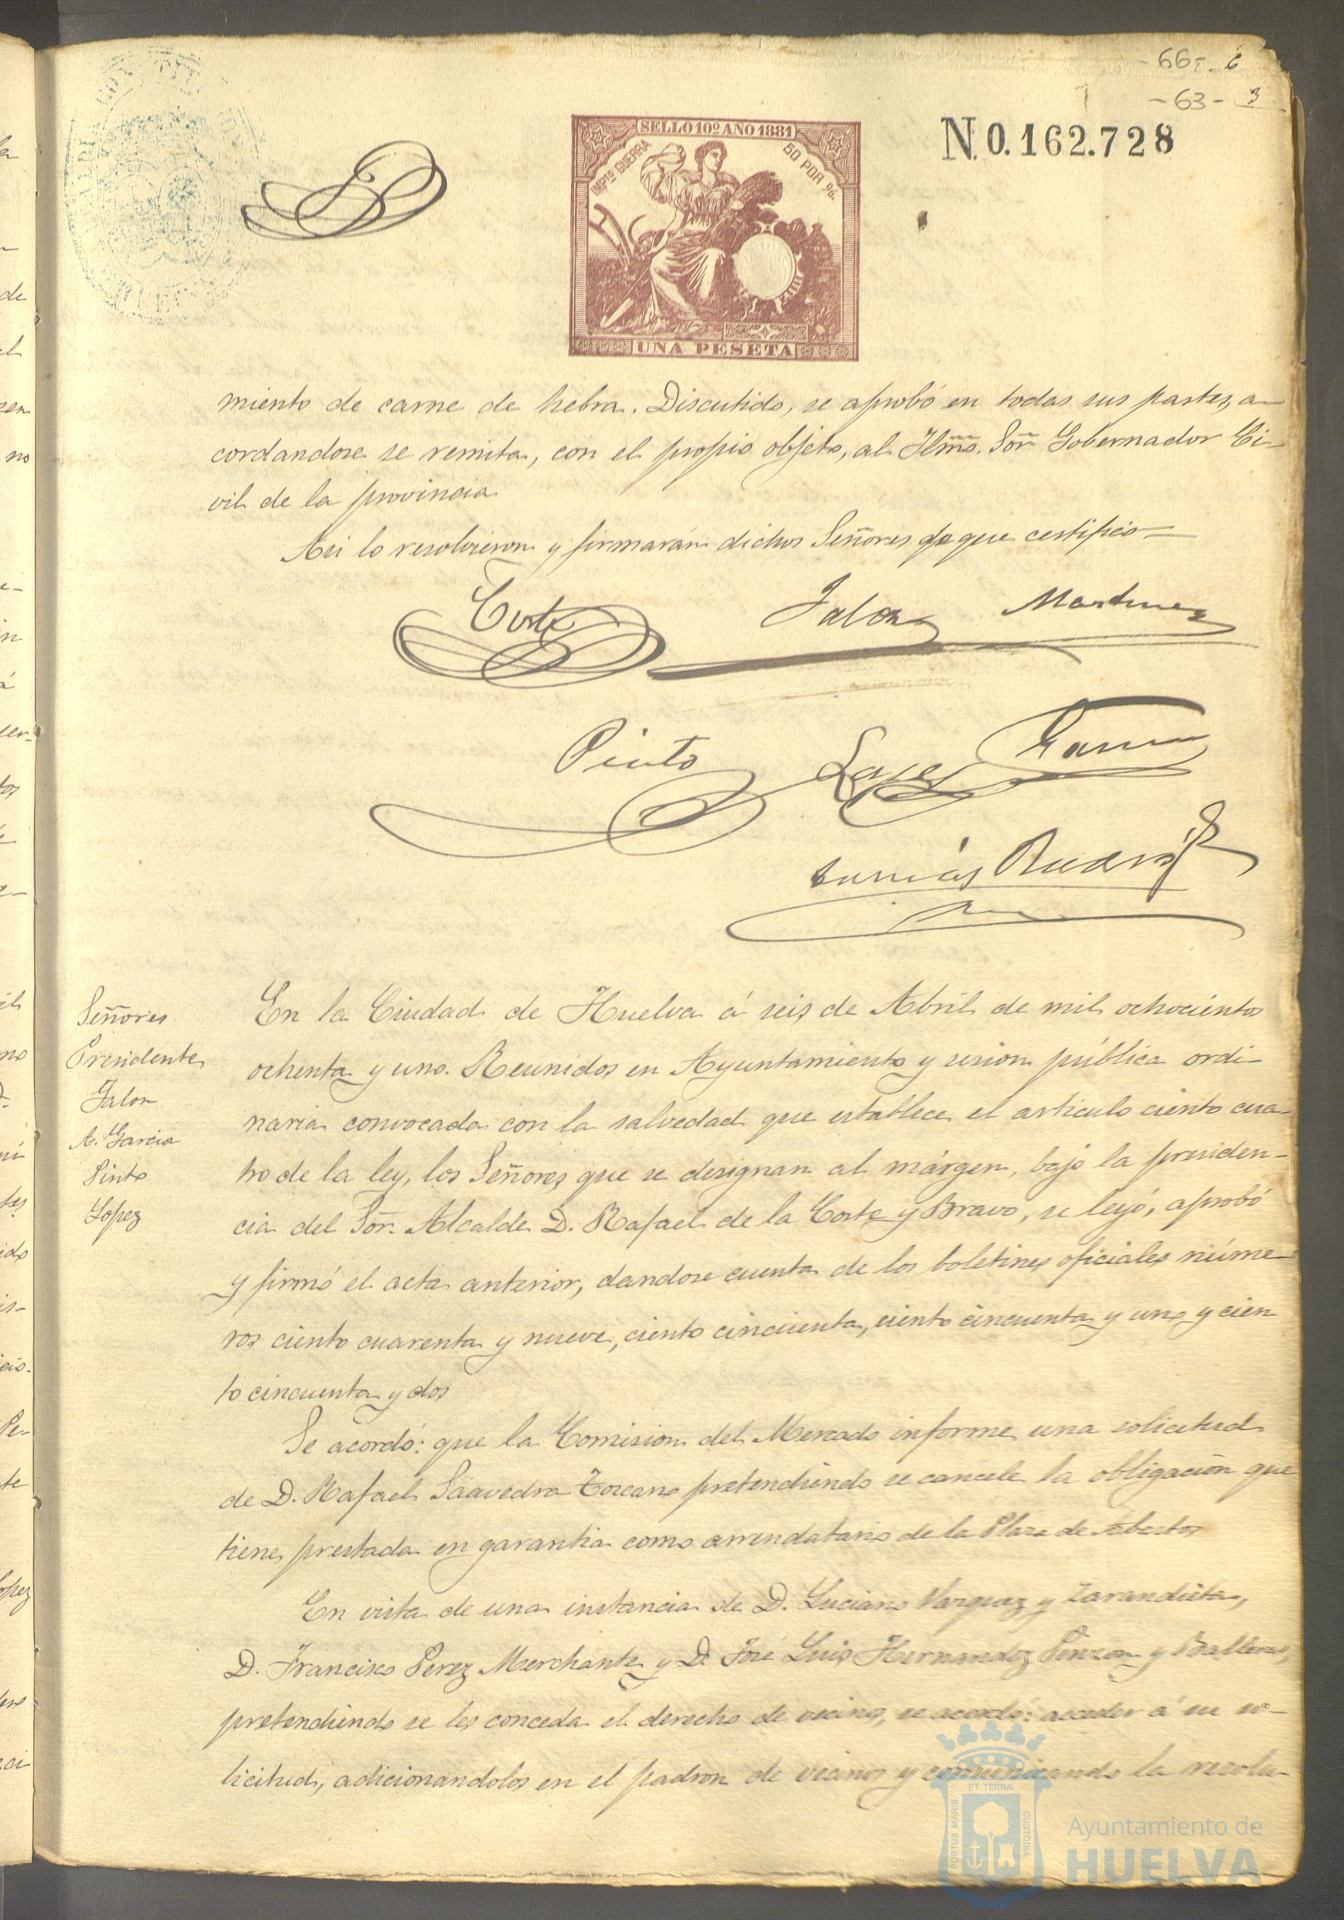 -66- 6
-63- 3
N.0.162.728
SELLO 10º AÑO 1881
IMPTO GUERRA
50 POR %.
UNA PESETA
miento de carne de hebra. Discutido, se aprobó en todas sus partes, a-
cordandose se remita, con el propio objeto, al Ylmo. Sor Gobernador Ci-
vil de la provincia
Asi lo resolvieron y firmarán dichos Señores de que certifico=
Corte Jalon Martinez
Pinto Lopez Garcia
En la Ciudad de Huelva á seis de Abril de mil ochocientos
ochenta y uno. Reunidos en Ayuntamiento y sesion pública ordi-
naria convocada con la salvedad que establece el articulo ciento cua-
tro de la ley, los Señores que se designan al márgen, bajo la presiden-
cia del Sor. Alcalde D. Rafael de la Corte y Bravo, se leyó, aprobó
y firmó el acta anterior, dandose cuenta de los boletines oficiales núme-
ros ciento cuarenta y nueve, ciento cincuenta, ciento cincuenta y uno y cien
to cincuenta y dos
Señores
Presidente
Jalon
A. Garcia
Pinto
Lopez
Se acordó: que la Comision del Mercado informe una solicitud
de D. Rafael Saavedra Toscano pretendiendo se cancele la obligación que
tiene prestada en garantia como arrendatario de la Plaza de Abastos
En vista de una instancia de D. Luciano Vazquez y Zarandieta,
D. Francisco Perez Merchante y D. José Luis Hernandez Pinzon y Ballester,
pretendiendo se les conceda el derecho de vecino, se acordó: acceder á su so-
licitud, adicionandolos en el padron de vecinos y comunicando la resolu-
PORTUS MARIS
ET TERRÆ
CUSTODIA
Ayuntamiento de
HUELVA